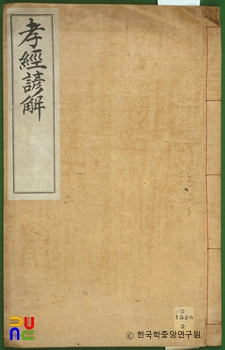 孝經諺解
1828
2
PUNE
© 한국학중앙연구원